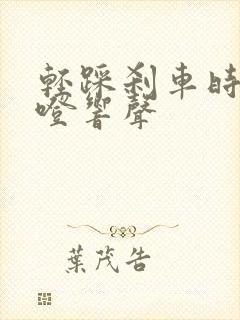 輕踩剎車時
噔響聲
葉茂告